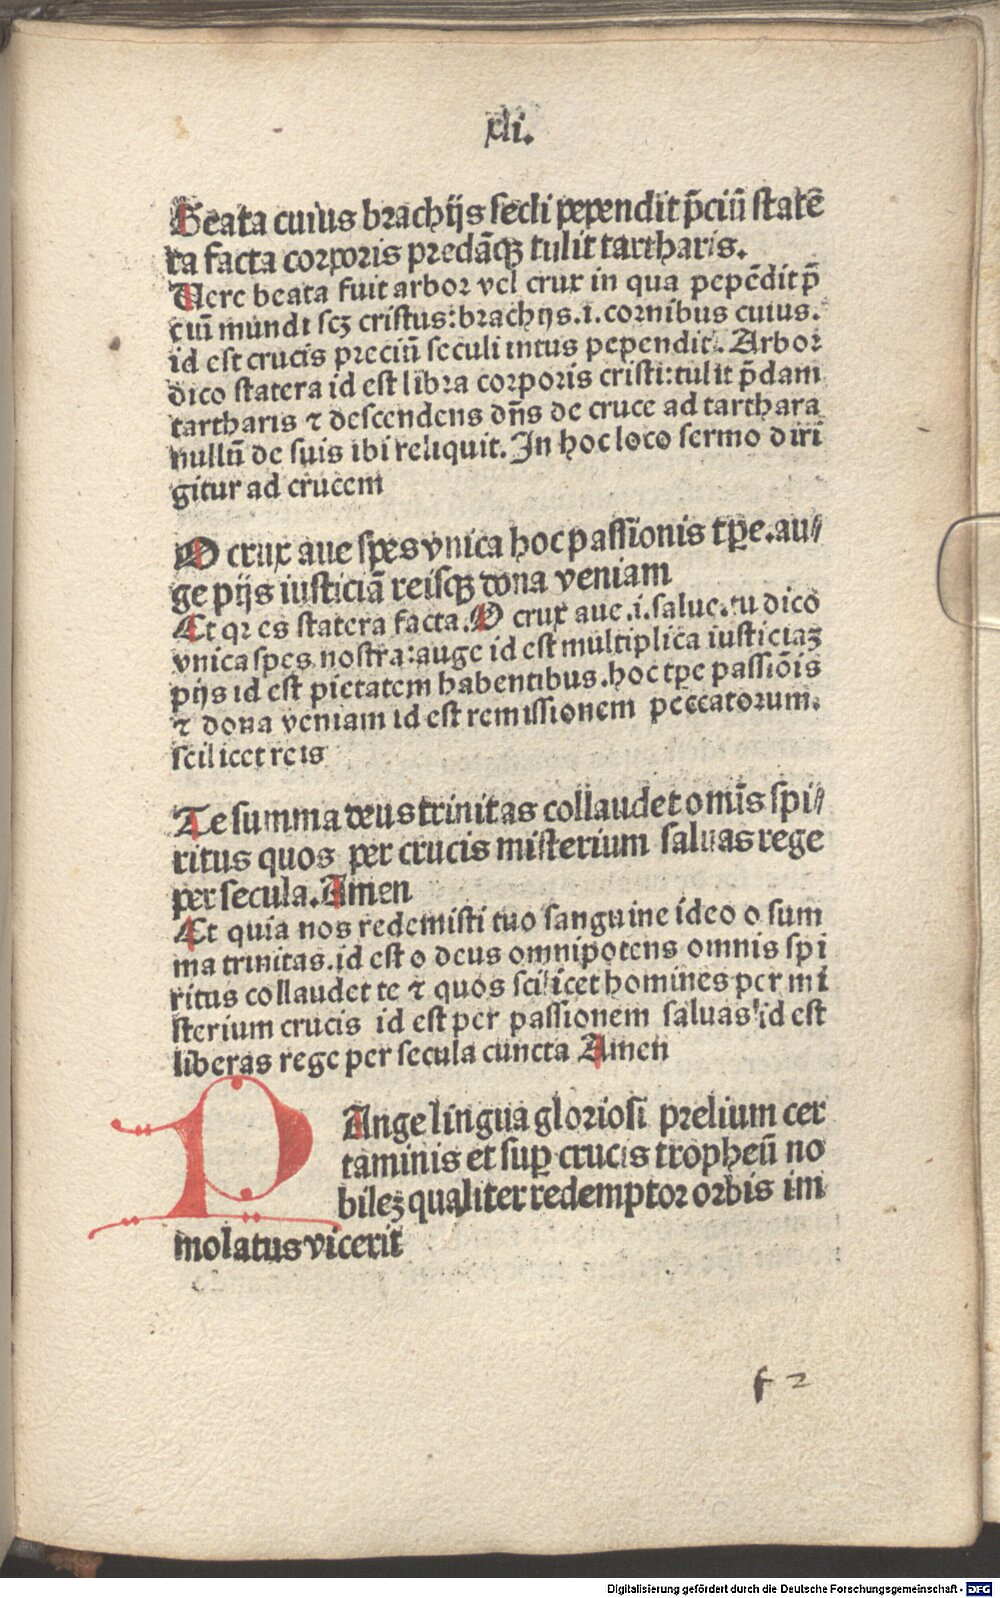 xli.
Beata cuius brachijs secli pependit p̄ciū statē
ra facta corporis predāq̄ꝫ tulit tartharis.
Uere beata fuit arbor vel crux in qua pepēdit p̄
ciū mundi scꝫ cristus: brachijs .i. cornibus cuius.
id est crucis preciū seculi intus pependit. Arbor
dico statera id est libra corporis cristi: tulit p̄dam
tartharis ⁊ descendens dn̄s de cruce ad tarthara
nullū de suis ibi reliquit. In hoc loco sermo diri
gitur ad crucem
O crux aue spes vnica hoc passionis tp̄e. au⸗
ge pijs iusticiā reisqꝫ dona veniam
Et qꝛ es statera facta. O crux aue .i. salue. tu dico
vnica spes nostra: auge id est multiplica iusticiaꝫ
pijs id est pietatem habentibus. hoc tp̄e passiōis
⁊ dona veniam id est remissionem peccatorum.
scilicet reis
Te summa deus trinitas collaudet omīs spi⸗
ritus quos per crucis misterium saluas rege
per secula. Amen
Et quia nos redemisti tuo sanguine ideo o sum
ma trinitas. id est o deus omnipotens omnis spi
ritus collaudet te ⁊ quos scilicet homines per mi
sterium crucis id est per passionem saluas id est
liberas rege per secula cuncta Amen
PAnge lingua gloriosi prelium cer
taminis et suꝑ crucis tropheū no
bileꝫ qualiter redemptor orbis im
molatus vicerit
f 2
Digitalisierung gefördert durch die Deutsche Forschungsgemeinschaft - DFG